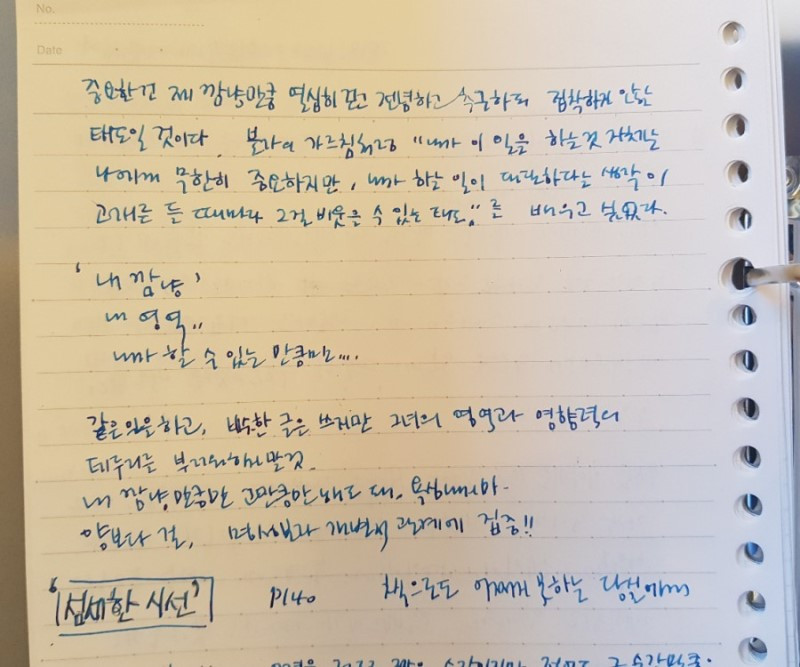 No.
Date
중요한건 제 깜냥만큼 열심히 하고 전념하고 추구하되 집착하지 않는
태도일 것이다. 붓다의 가르침처럼 "내가 이 일을 하는것 자체는
나에게 무한히 중요하지만, 내가 하는 일이 대단하다는 생각이
고개를 든 때마다 그걸 비웃을 수 있는 태도"를 배우고 싶었다.
'내 깜냥'
내 영역..
내가 할 수 있는 만큼만....
같은일을하고, 비슷한 글은 쓰지만 그녀의 영역과 영향력의
테두리를 부러워하지말것.
내 깜냥만큼만 고만큼만 해도 돼. 욕심내지마.
양보다 질, 개별적 관계에 집중!!
'섬세한 시선' P140 책으로도 어쩌지 못하는 당신에게